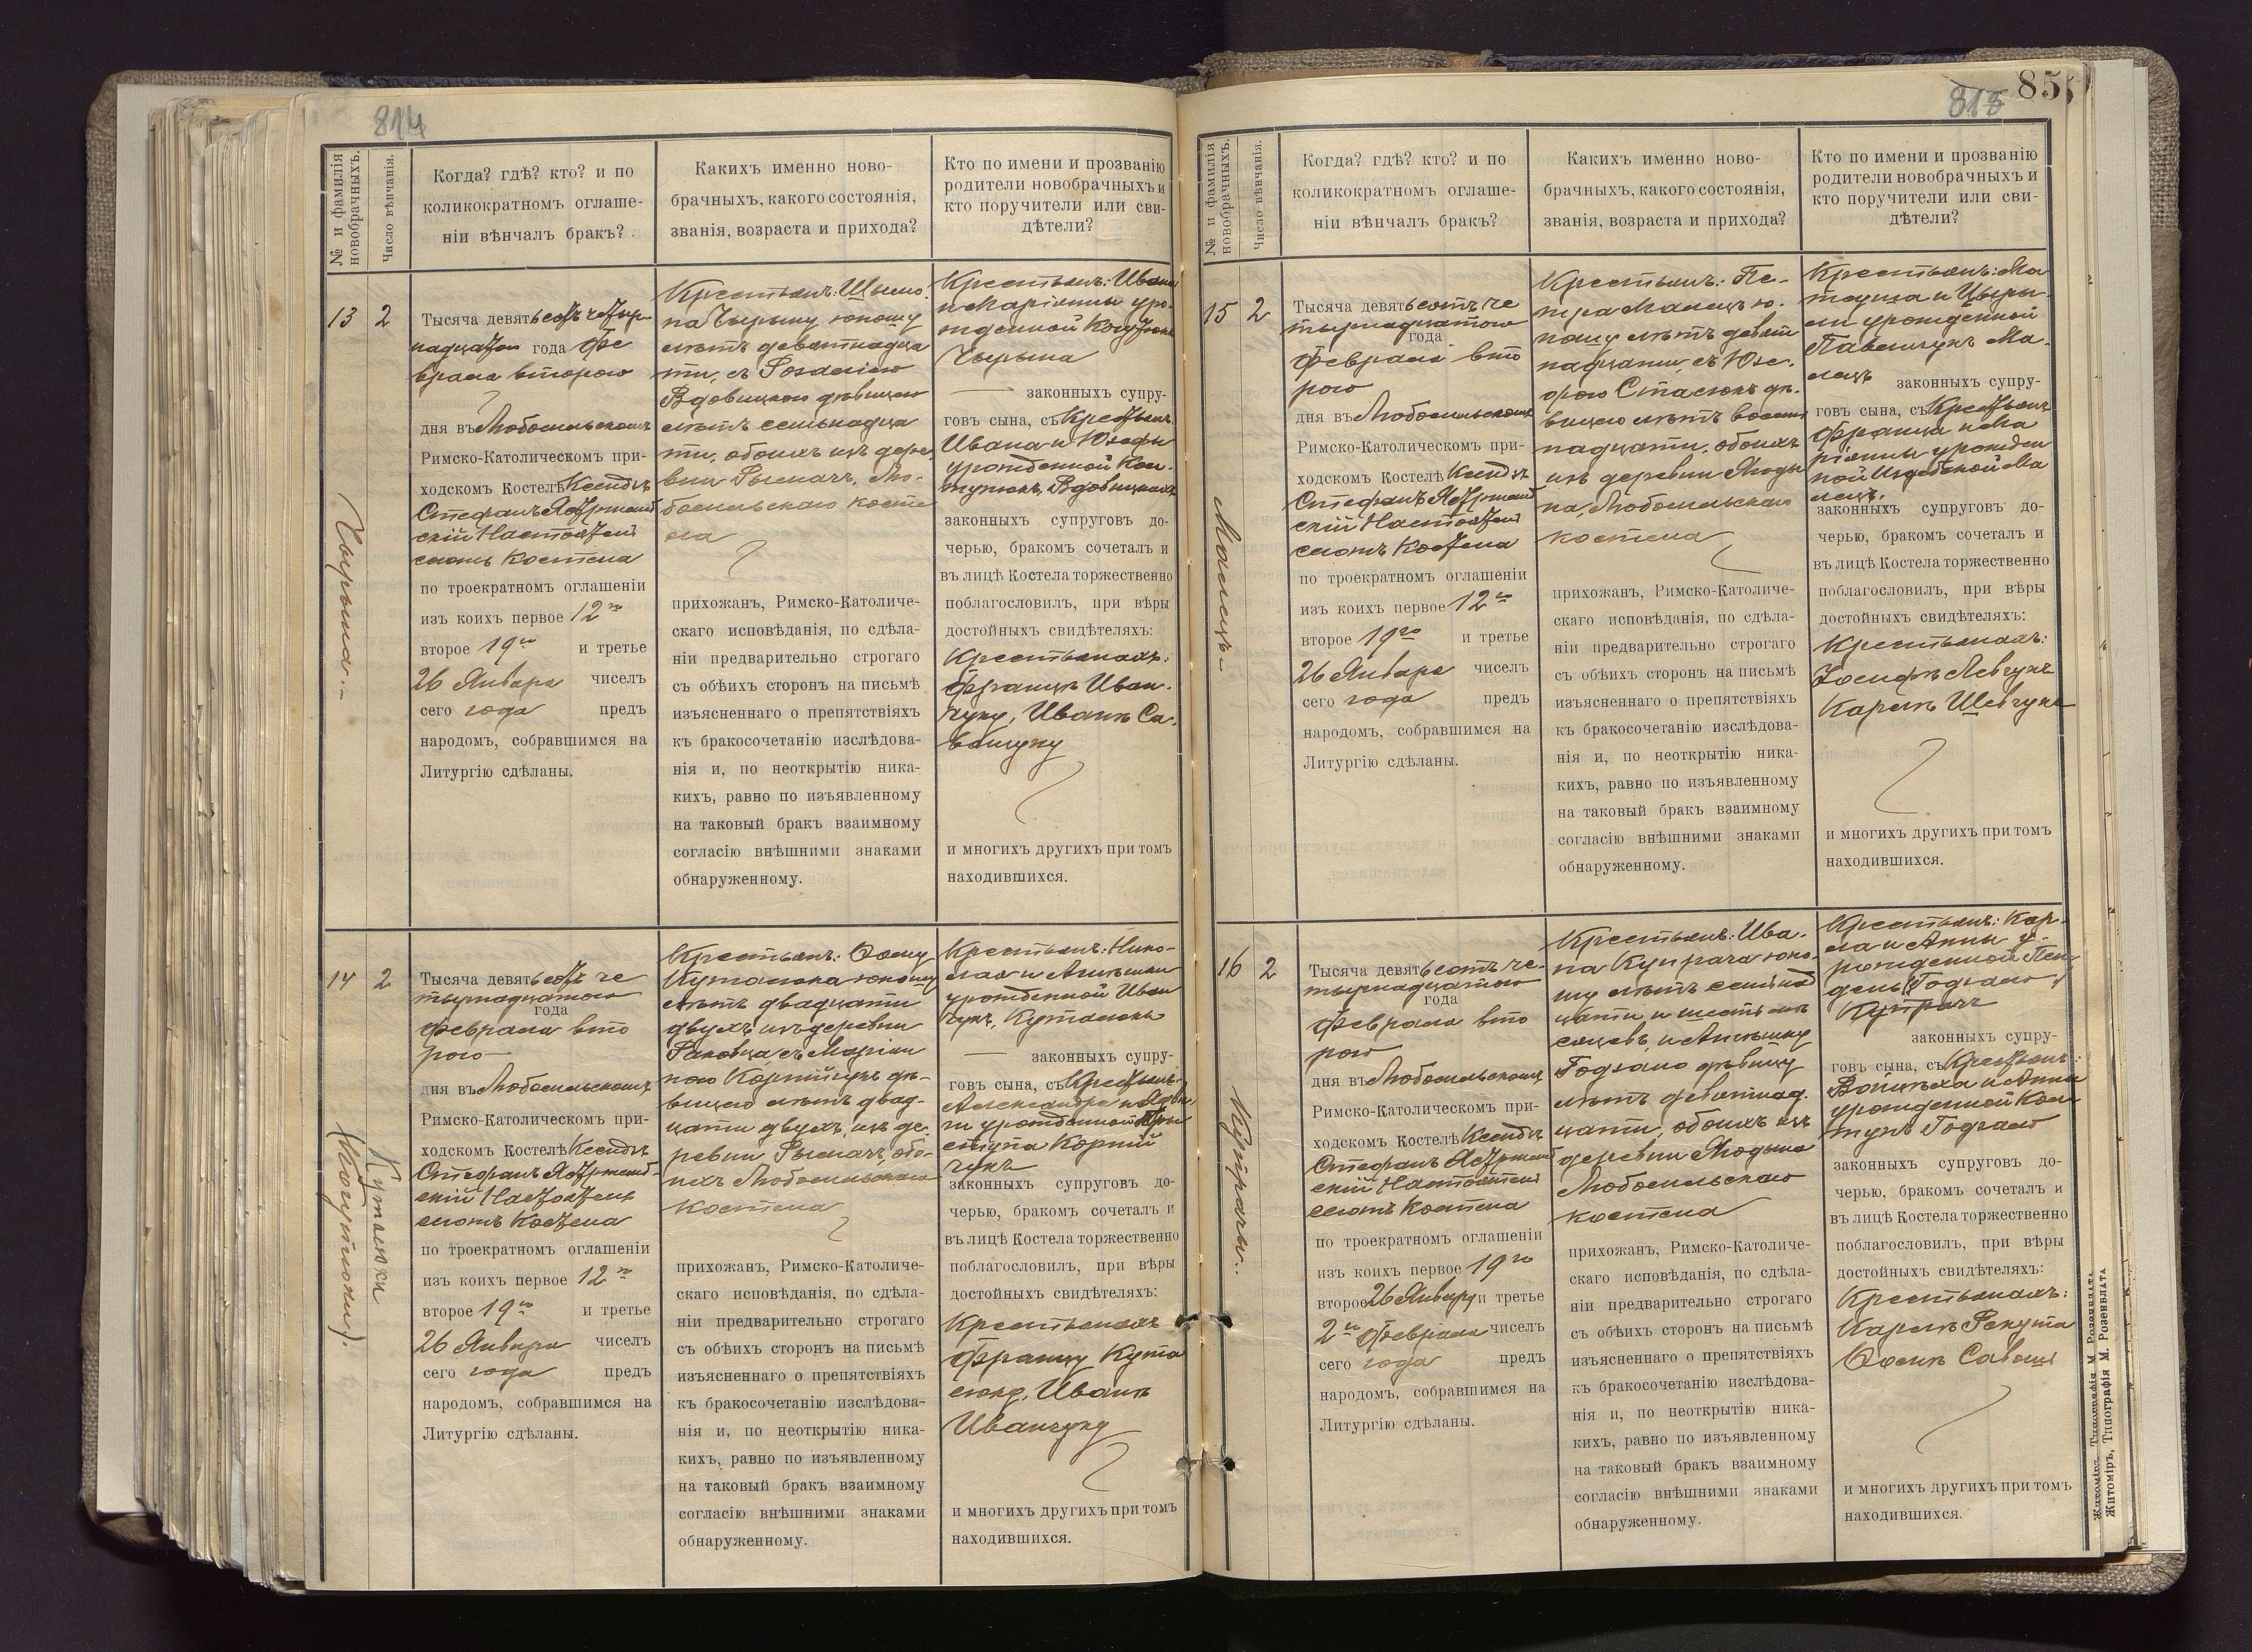 814
№ и фамилія новобрачныхъ.
Число вѣнчанія.
Когда? гдѣ? кто? и по
коликократномъ оглаше-
ніи вѣнчалъ бракъ?
Какихъ именно ново-
брачныхъ, какого состоянія,
званія, возраста и прихода?
Кто по имени и прозванію
родители новобрачныхъ и
кто поручители или сви-
дѣтели?
13
2
Чырына.
Тысяча девятьсотъ четыр-
надцатаго года Фе
враля второго
дня въ Любосельскомъ
Римско-Католическомъ при-
ходскомъ Костелѣ Ксендзъ
Стефанъ Ястржемб
скій Настоятель
Костела
по троекратномъ оглашеніи
изъ коихъ первое 12го
второе 19го и третье
26 Января чиселъ
сего года предъ
народомъ, собравшимся на
Литургію сдѣланы.
Крестьянъ: Шымо-
на Чырыну юношу
лѣтъ девятнадца
ти, съ Розаліею
Вдовицкою дѣвицею
лѣтъ семьнадца
ти, обоихъ изъ дере
вни Рымачъ, Лю-
босельскаго косте
ла
прихожанъ, Римско-Католиче-
скаго исповѣданія, по сдѣла-
ніи предварительно строгаго
съ обѣихъ сторонъ на письмѣ
изъясненнаго о препятствіяхъ
къ бракосочетанію изслѣдова-
нія и, по неоткрытію ника-
кихъ, равно по изъявленному
на таковый бракъ взаимному
согласію внѣшними знаками
обнаруженному.
Крестьянъ: Ивана
и Маріанны уро-
жденной
Чырына
законныхъ супру-
говъ сына, съ Крестьянъ
Ивана и Юзефы
урожденной Кол-
тунюкъ, Вдовицкихъ
законныхъ супруговъ до-
черью, бракомъ сочеталъ и
въ лицѣ Костела торжественно
поблагословилъ, при вѣры
достойныхъ свидѣтеляхъ:
Крестьянахъ:
Францѣ Иван-
чуку, Иванѣ Са-
ващуку
и многихъ другихъ при томъ
находившихся.
14
2
Кутасюки
Тысяча девятьсотъ че
тырнадцатаго
года
Февраля вто
рого
дня въ Любосельскомъ
Римско-Католическомъ при-
ходскомъ Костелѣ Ксендзъ
Стефанъ Ястржемб-
скій Настоятель
Костела
по троекратномъ оглашеніи
изъ коихъ первое 12го
второе 19го и третье
26 Января чиселъ
сего года предъ
народомъ, собравшимся на
Литургію сдѣланы.
Крестьянъ: Ѳому
Кутасюка юношу
лѣтъ двадцати
двухъ изъ деревни
Раковца съ Маріан
ною Корнійчукъ дѣ-
вицею лѣтъ двад-
цати двухъ, изъ де
ревни Рымачъ, обо-
ихъ Любосельскаго
костела
прихожанъ, Римско-Католиче-
скаго исповѣданія, по сдѣла-
ніи предварительно строгаго
съ обѣихъ сторонъ на письмѣ
изъясненнаго о препятствіяхъ
къ бракосочетанію изслѣдова-
нія и, по неоткрытію ника-
кихъ, равно по изъявленному
на таковый бракъ взаимному
согласію внѣшними знаками
обнаруженному.
Крестьянъ: Нико-
лая и Агнѣшки
урожденной Иван
чукъ, Кутасюкъ
законныхъ супру-
говъ сына, съ Крестьянъ:
Александра и Ядви
ги урожденной
Корній
чукъ
законныхъ супруговъ до-
черью, бракомъ сочеталъ и
въ лицѣ Костела торжественно
поблагословилъ, при вѣры
достойныхъ свидѣтеляхъ:
Крестьянахъ
Францу Кута
сюку, Иванѣ
Иванчуку
и многихъ другихъ при томъ
находившихся.
85
№ и фамилія новобрачныхъ.
Число вѣнчанія.
Когда? гдѣ? кто? и по
коликократномъ оглаше-
ніи вѣнчалъ бракъ?
Какихъ именно ново-
брачныхъ, какого состоянія,
званія, возраста и прихода?
Кто по имени и прозванію
родители новобрачныхъ и
кто поручители или сви-
дѣтели?
15
2
Малецъ
Тысяча девятьсотъ че
тырнадцатаго
года
Февраля вто
рого
дня въ Любосельскомъ
Римско-Католическомъ при-
ходскомъ Костелѣ Ксендзъ
Стефанъ Ястржемб
скій Настоятель
Костела
по троекратномъ оглашеніи
изъ коихъ первое 12го
второе 19го и третье
26 Января чиселъ
сего года предъ
народомъ, собравшимся на
Литургію сдѣланы.
Крестьянъ: Пе-
тра Малецъ ю-
ношу лѣтъ девят
надцати, съ Юзе-
фою Стасюкъ дѣ-
вицею лѣтъ восем
надцати, обоихъ
изъ деревни Ягоды
на, Любосельскаго
костела
прихожанъ, Римско-Католиче-
скаго исповѣданія, по сдѣла-
ніи предварительно строгаго
съ обѣихъ сторонъ на письмѣ
изъясненнаго о препятствіяхъ
къ бракосочетанію изслѣдова-
нія и, по неоткрытію ника-
кихъ, равно по изъявленному
на таковый бракъ взаимному
согласію внѣшними знаками
обнаруженному.
Крестьянъ: Ма
теуша и Цыры-
ли урожденной
Павельчукъ Ма-
лецъ законныхъ супру-
говъ сына, съ Крестьянъ
Франца и Ма
ріанны урожден
ной
законныхъ супруговъ до-
черью, бракомъ сочеталъ и
въ лицѣ Костела торжественно
поблагословилъ, при вѣры
достойныхъ свидѣтеляхъ:
Крестьянахъ:
Іосифѣ Левчукъ
Каролѣ Шевчукъ
и многихъ другихъ при томъ
находившихся.
16
2
Купрачы.
Тысяча девятьсотъ че-
тырнадцатаго
года
Февраля вто
рого
дня въ Любосельскомъ
Римско-Католическомъ при-
ходскомъ Костелѣ Ксендзъ
Стефанъ Ястржемб
скій Настоятель
Костела
по троекратномъ оглашеніи
изъ коихъ первое 19го
второе 26 Января и третье
2го Февраля чиселъ
сего года предъ
народомъ, собравшимся на
Литургію сдѣланы.
Крестьянъ: Ива-
на Купрача юно-
шу лѣтъ семнад
цати и шесть мѣ
сяцевъ, и Агнѣшку
Годзало дѣвицу
лѣтъ девятнад-
цати, обоихъ изъ
деревни Ягодына
Любосельскаго
костела
прихожанъ, Римско-Католиче-
скаго исповѣданія, по сдѣла-
ніи предварительно строгаго
съ обѣихъ сторонъ на письмѣ
изъясненнаго о препятствіяхъ
къ бракосочетанію изслѣдова-
нія и, по неоткрытію ника-
кихъ, равно по изъявленному
на таковый бракъ взаимному
согласію внѣшними знаками
обнаруженному.
Крестьянъ: Кар-
ла и Анны у-
рожденной
Годзало
Купрачъ
законныхъ супру-
говъ сына, съ Крестьянъ:
Войцѣха и Анны
урожденной Кол
тунъ Годзало
законныхъ супруговъ до-
черью, бракомъ сочеталъ и
въ лицѣ Костела торжественно
поблагословилъ, при вѣры
достойныхъ свидѣтеляхъ:
Крестьянахъ:
Каролѣ Рекута
и многихъ другихъ при томъ
находившихся.
Житоміръ, Типографія М. Розенблата